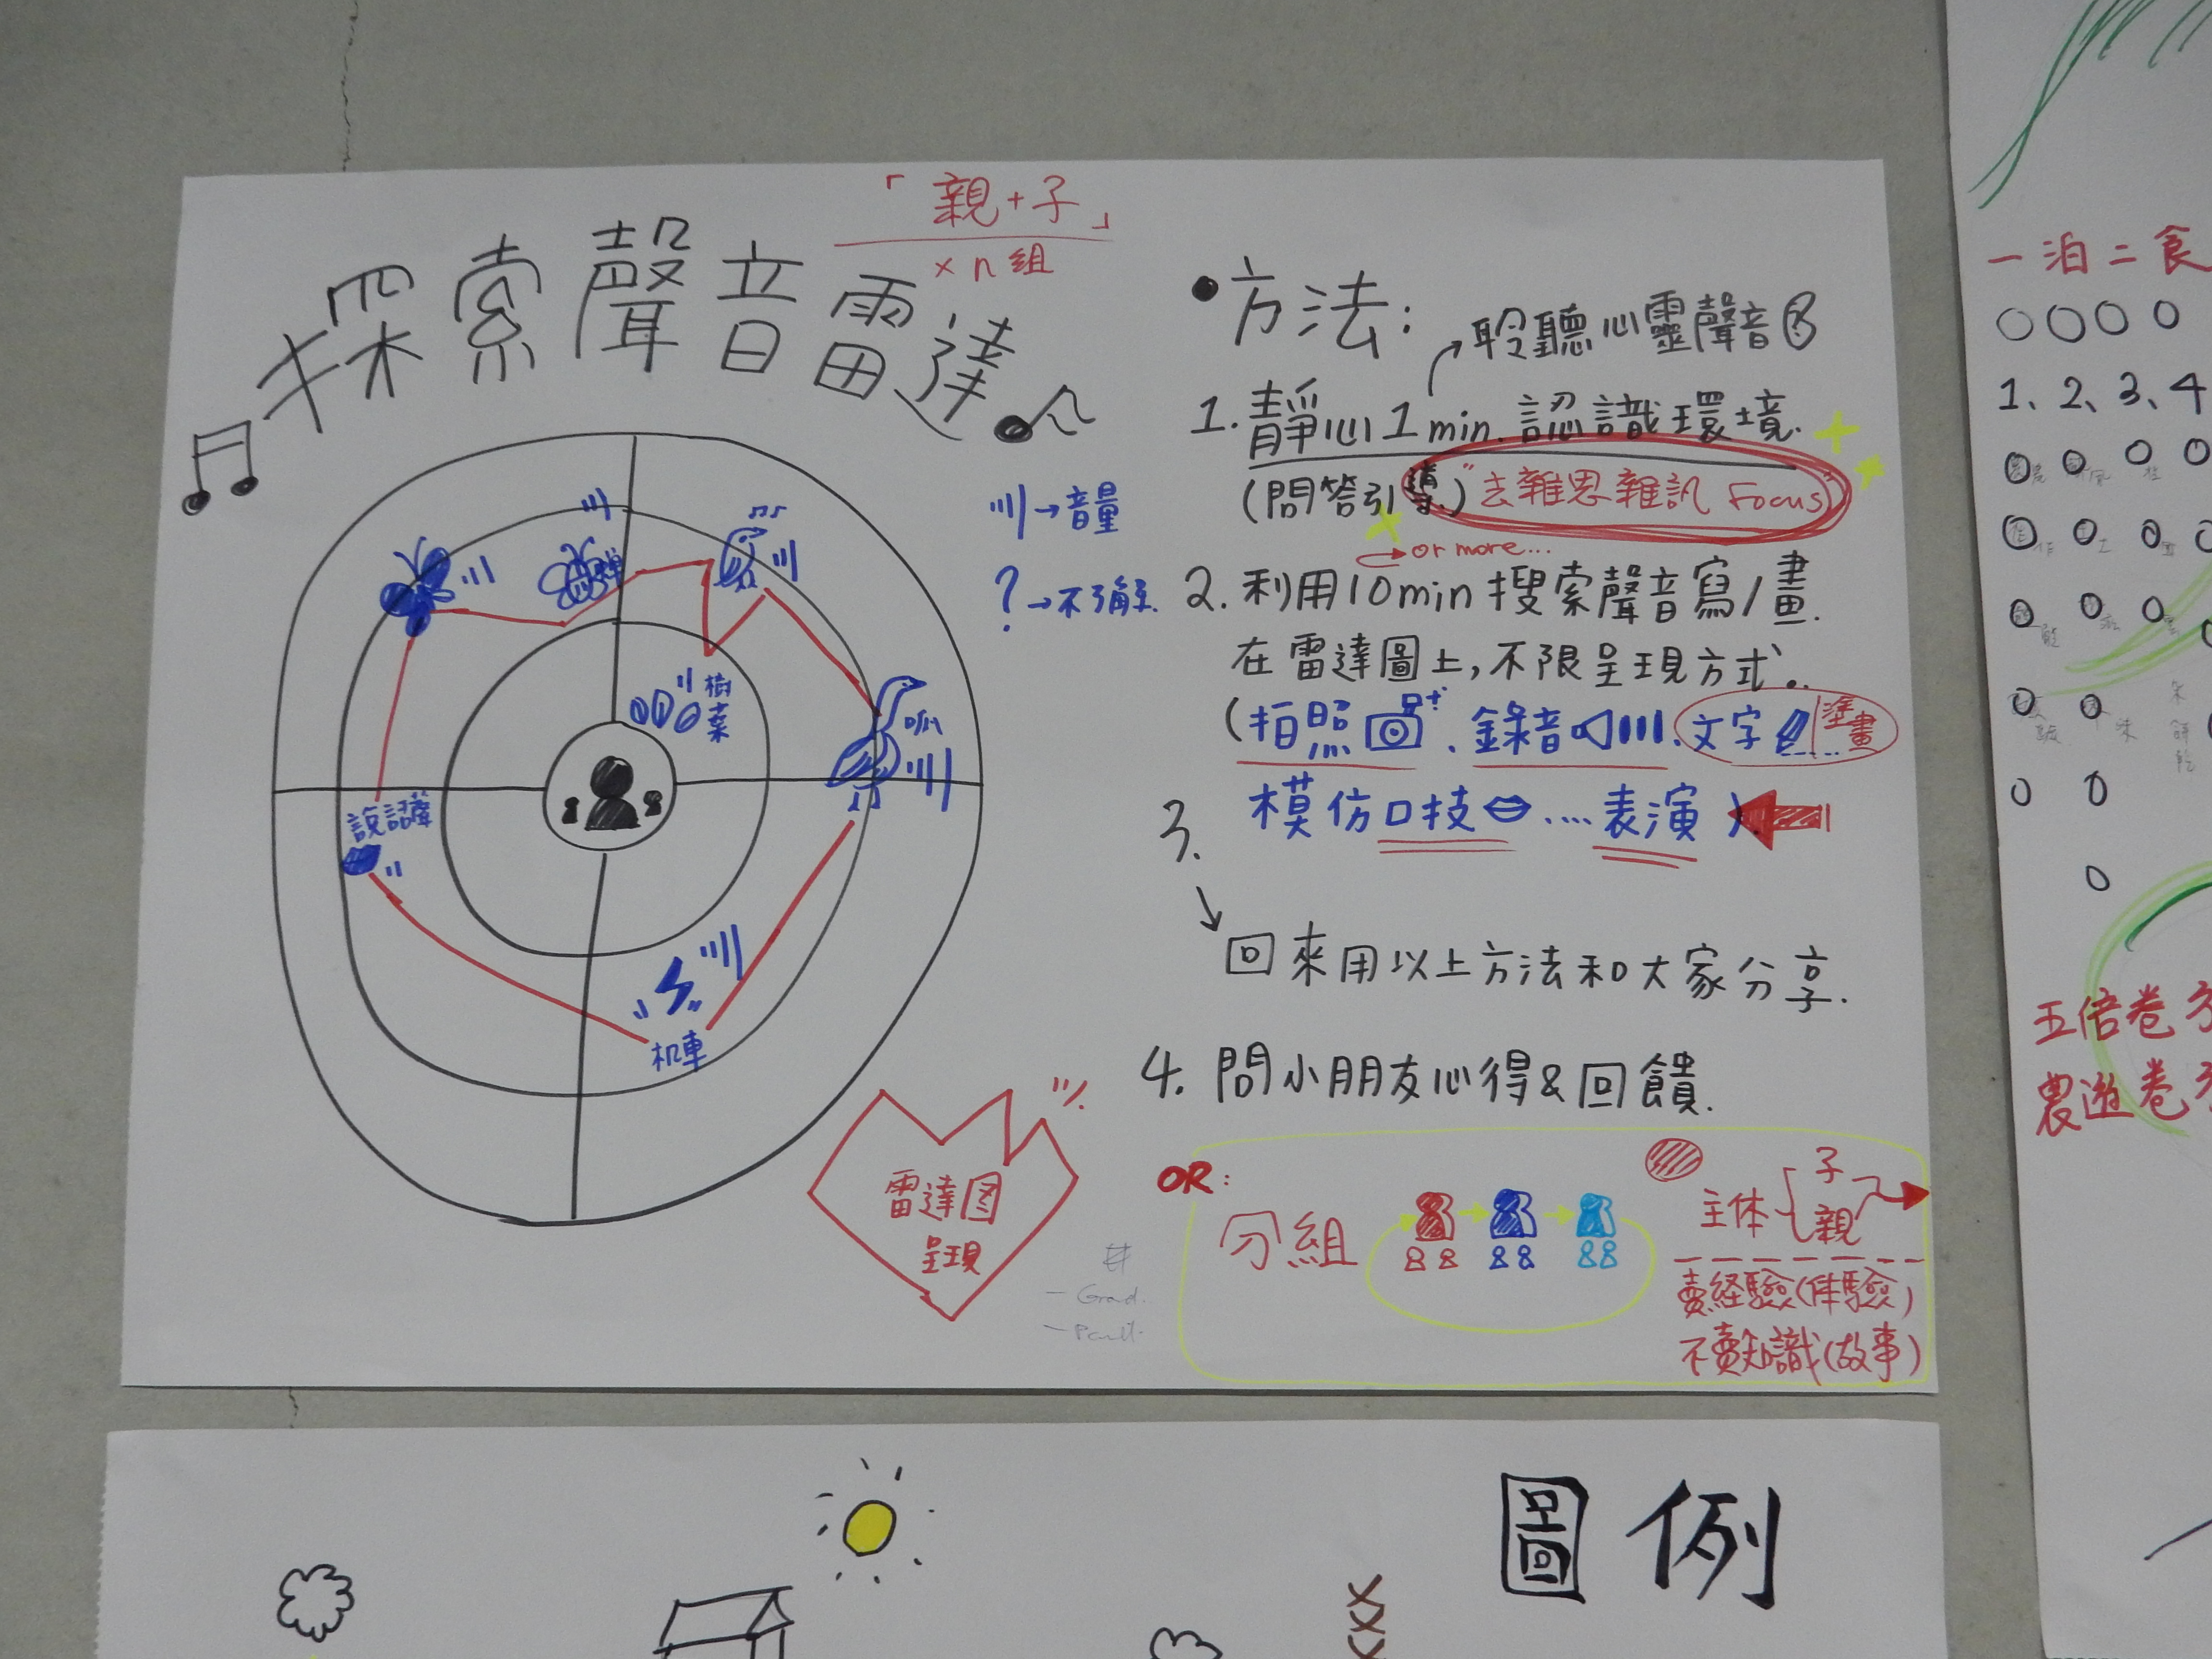 「親+子」
×n組
探索聲音雷達
川→音量
?→不了解
蟬
樹葉
呱
說話聲
机車
雷達图
呈現
•方法:
聆聽心靈聲音
1.靜心1min.認識環境.
(問答引導)"去雜思雜訊 Focus"
or more...
2.利用10min搜索聲音寫/畫.
在雷達圖上,不限呈現方式..
(拍照、錄音、文字 塗畫
模仿口技....表演)
3.
回來用以上方法和大家分享.
4.問小朋友心得&回饋.
OR:
分組
主体
子
親
賣経驗(体驗)
不賣知識(故事)
一泊二食
1、2、3、4
五倍卷
農遊卷
圖例